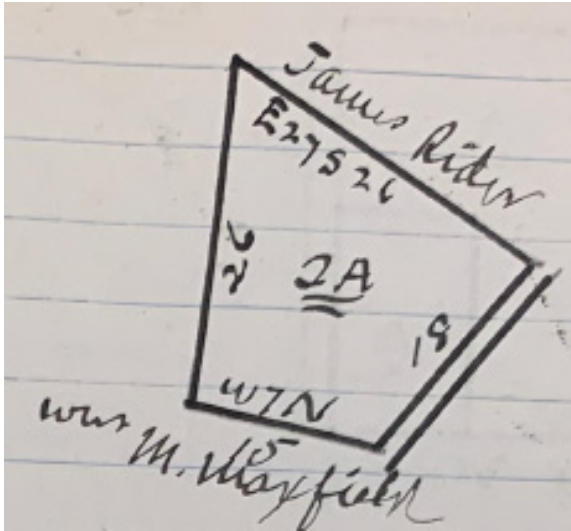 James Rider
E27S 26
26
2A
18
W7N
15
was M. Maxfield